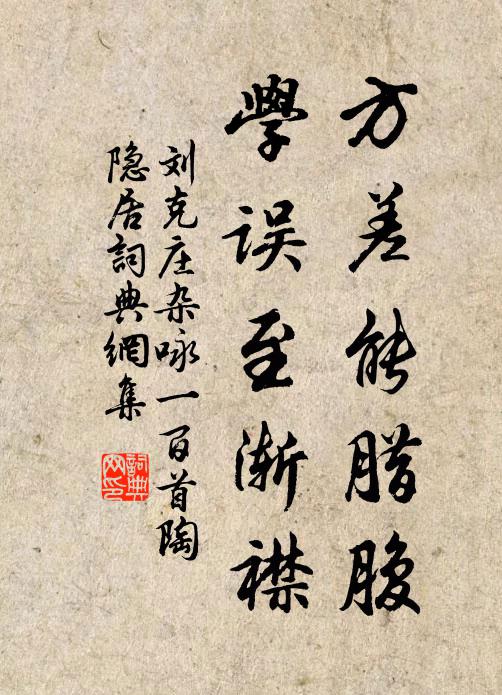 方差能腊腹
學误至渐襟
刘克庄杂咏一百首陶
隐居詞典網集
詞典
网印